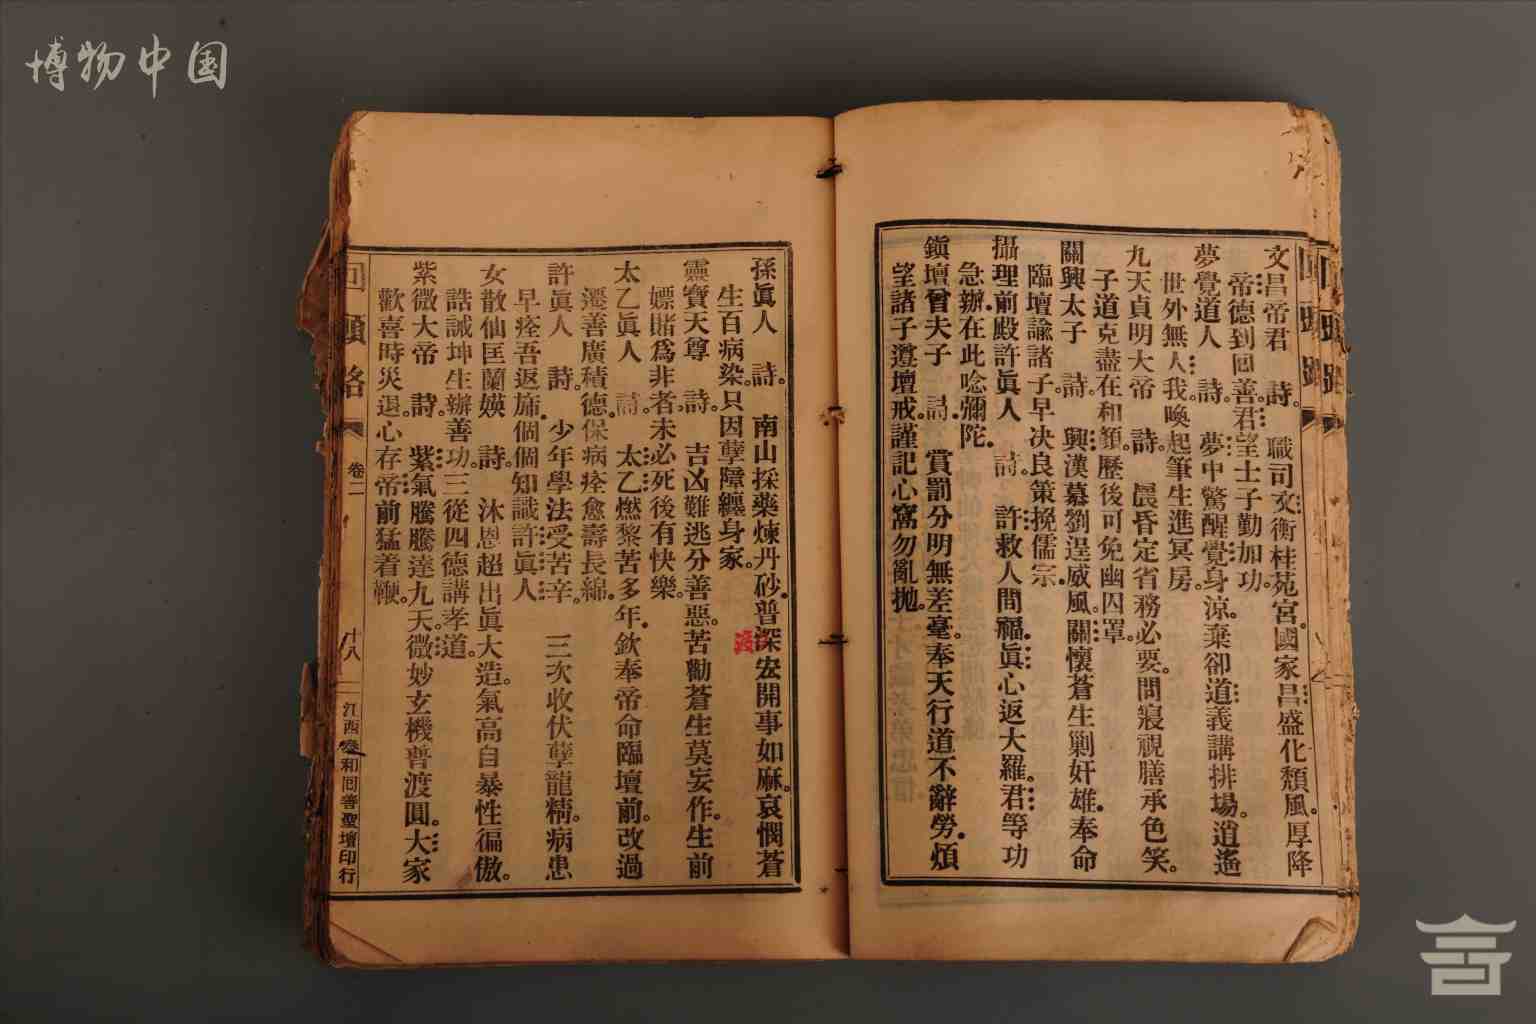 博物中国
文昌帝君 詩。 職司文衡桂苑宮。國家昌盛化頹風。厚降
帝德到回善。君望士子勤加功。
夢覺道人 詩。 夢中驚醒覺身涼。棄卻道義講排場。逍遙
世外無人我。喚起筆生進冥房。
九天貞明大帝 詩。 晨昏定省務必要。問寢視膳承色笑。
子道克盡在和顏。歷後可免幽囚罩。
關興太子 詩。 興漢慕劉逞威風。關懷蒼生剿奸雄。奉命
臨壇諭諸子。早決良策挽儒宗。
攝理前殿許眞人 詩。 許救人間福。眞心返大羅。君等功
急辦。在此唸彌陀。
鎭壇曾夫子 詩。 賞罰分明無差毫。奉天行道不辭勞。煩
望諸子遵壇戒。謹記心窩勿亂拋。
孫眞人 詩。 南山採藥煉丹砂。普深宏開事如麻。哀憫蒼
生百病染。只因孽障纏身家。
渡
靈寶天尊 詩。 吉凶難逃分善惡。苦勸蒼生莫妄作。生前
嫖賭爲非者。未必死後有快樂。
太乙眞人 詩。 太乙燃黎苦多年。欽奉帝命臨壇前。改過
遷善廣積德。保病痊愈壽長綿。
許眞人 詩。 少年學法受苦辛。 三次收伏孽龍精。病患
早痊吾返旆。個個知識許眞人
女散仙匡蘭媖 詩。 沐恩超出眞大造。氣高自暴性徧傲。
誥誡坤生辦善功。三從四德講孝道。
紫微大帝 詩。 紫氣騰騰達九天。微妙玄機普渡圓。大家
歡喜時災退。心存帝前猛着鞭。
回頭路 卷二 十八 江西 和同善聖壇印行